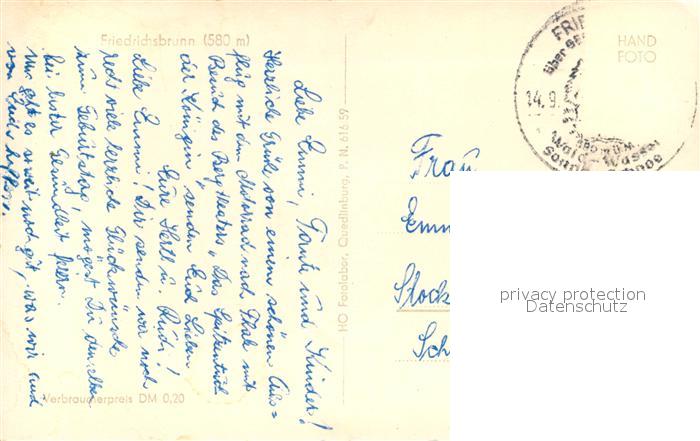 Friedrichsbrunn (580 m)
Liebe Emmi, Tante und Kinder!
Herzliche Grüße von einem schönen Aus=
flug mit dem Motorrad nach Thale mit
Besuch des Bergtheaters „Das Spitzentuch
der Königin" senden Euch Lieben
Eure Hertl u. Rudi!
Liebe Emmi! Dir senden wir noch
recht viele herzliche Glückwünsche
zum Geburtstag, mögest Du denselben
bei bester Gesundheit feiern.
Uns geht es soweit noch gut, was wir auch
von Euch hoffen.
Verbraucherpreis DM 0,20
HO Fotolabor, Quedlinburg, P. N. 616 59
HAND
FOTO
FRIE
über
14. 9.
Wald
Frau
Emm
Stock
Sch
privacy protection
Datenschutz